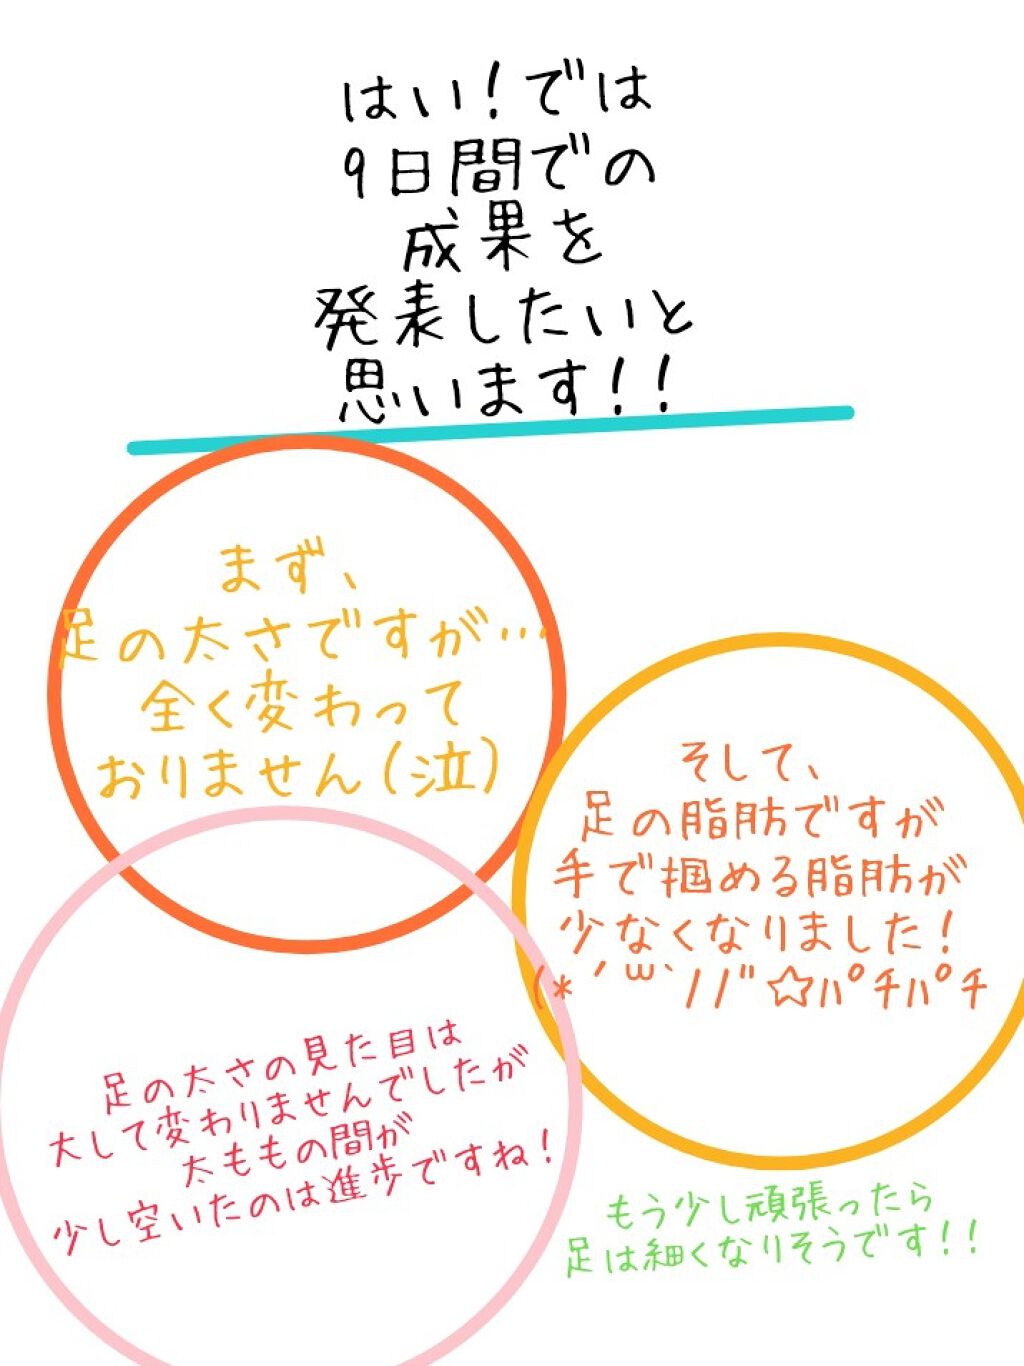 はい!では
9日間での
成果を
発表したいと
思います!!
まず、
足の太さですが…
全く変わって
おりません(泣)
そして、
足の脂肪ですが
手で掴める脂肪が
少なくなりました!
(*´꒳`ノノ゙☆パチパチ
足の太さの見た目は
大して変わりませんでしたが
太ももの間が
少し空いたのは進歩ですね!
もう少し頑張ったら
足は細くなりそうです!!